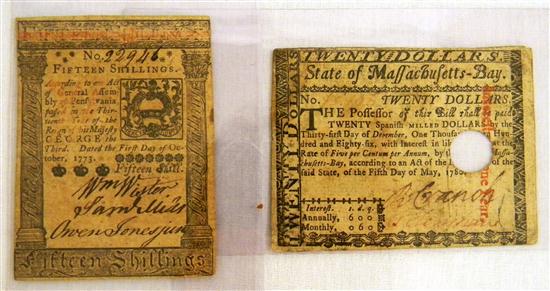 No. 22946
FIFTEEN SHILLINGS.
According to an Act
of General Assem-
bly of Pensylvania
passed in the Thir-
teenth Year of the
Reign of his Majesty
GEORGE the
Third. Dated the First Day of Oc-
tober, 1773.
Fifteen Shill.
Owen Jones junr
Fifteen Shillings
TWENTY DOLLARS.
TWENTY DOLLARS
State of Massachusetts-Bay.
No. TWENTY DOLLARS.
THE Possessor of this Bill shall be paid
TWENTY Spanish MILLED DOLLARS by the
Thirty-first Day of December, One Thousand Hun-
dred and Eighty-six, with Interest in like at the
Rate of Five per Centum per Annum, by Massa-
chusetts-Bay, according to an Act of the of the
said State, of the Fifth Day of May, 1780.
Interest. s. d. q.
Annually, 6 0 0
Monthly, 0 6 0